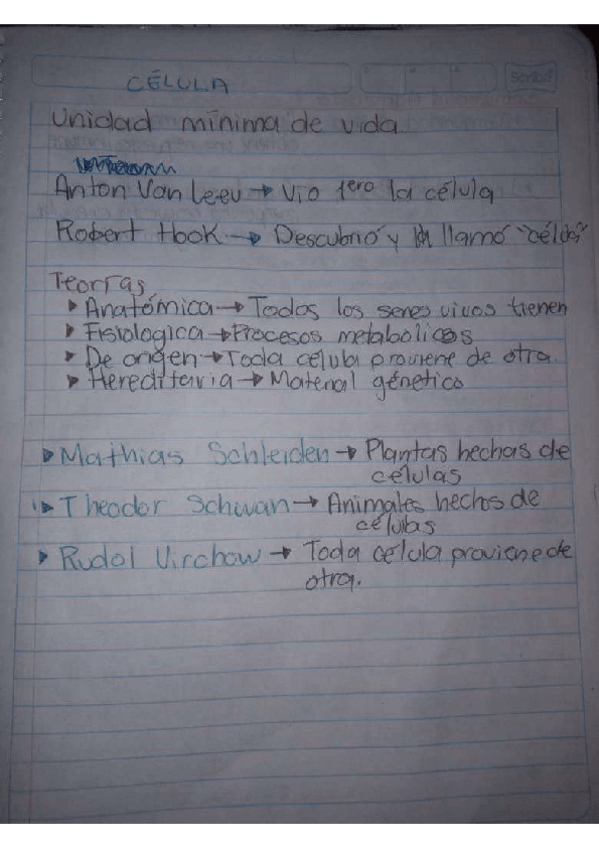 Scribe
CÉLULA
Unidad mínima de vida
Anton Van Leeu → Vio 1ero la célula
Robert Hook → Descubrió y la llamó "célda"
Teorías
Anatómica → Todos los seres vivos tienen
Fisiologica → Procesos metabolicos
De origen → Toda célula proviene de otra.
Hereditaria → Material génetico
Mathias Schleiden → Plantas hechas de
células
Theodor Schwan → Animales hechos de
células
Rudol Virchow → Toda célula proviene de
otra.